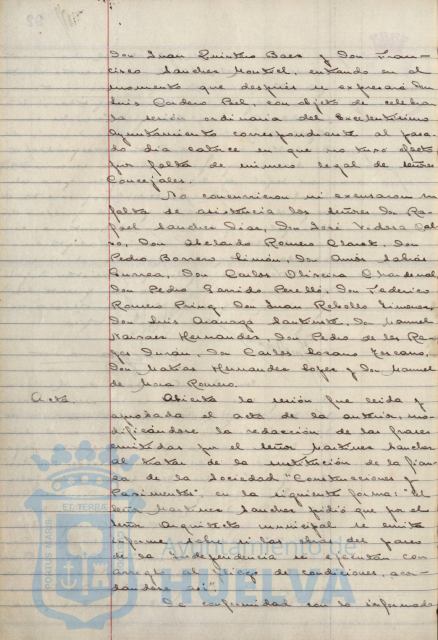 don Juan Quintero Baez y don Fran-
cisco Sanchez Montiel, entrando en el
momento que después se expresará Don
Luis Cordero Bel, con objeto de celebrar
la sesión ordinaria del Excelentísimo
Ayuntamiento correspondiente al pasa-
do dia catorce en que no tuvo efecto
por falta de número legal de señores
Concejales.
No concurrieron ni excusaron su
falta de asistencia los señores Don Ra-
fael Sanchez Diaz, don José
Don Abelardo Romero Claret, don
Pedro Borrero Limón, Don Amós Sabrás
Gurrea, Don Carlos Oliveira
Don Pedro Garrido Perelló, don Federico
Romero don Juan Rebollo Jimenez,
Don Luis Don Manuel
Narvaez Hernandez, Don Pedro de los Ra-
yos Durán, Don Carlos Lozano
Don Matias Hernandez Lopez y Don Manuel
de Mora Romero.
Acta. Abierta la sesión fue leida y
aprobada el acta de la anterior, mo-
dificándose la redacción de las frases
emitidas por el señor Martinez Sanchez
al tratar de la sustitución de la fian-
za de la Sociedad "Construcciones y
Pavimentos", en la siguiente forma: "el
señor Martinez Sanchez pidió que por el
señor Arquitecto municipal se emita
informe sobre si las obras del paseo
de la Independencia se ejecutan con
arreglo al pliego de condiciones, acor-
dandose asi".
De conformidad con lo informado
Ayuntamiento de
HUELVA